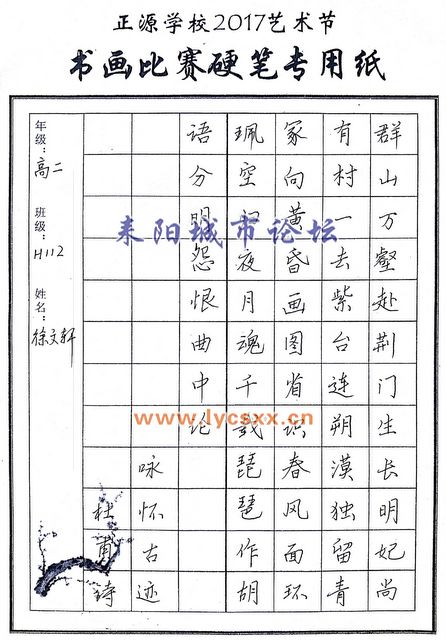 正源学校2017艺术节
书画比赛硬笔专用纸
群山万壑赴荆门生长明妃尚
有村一去紫台连朔漠独留青
冢向黄昏画图省识春风面环
珮空归夜月魂千载琵琶作胡
语分明怨恨曲中论
咏怀古迹
杜甫诗
年级：高二 班级：H112 姓名：徐文轩
耒阳城市论坛
www.lycsxx.cn